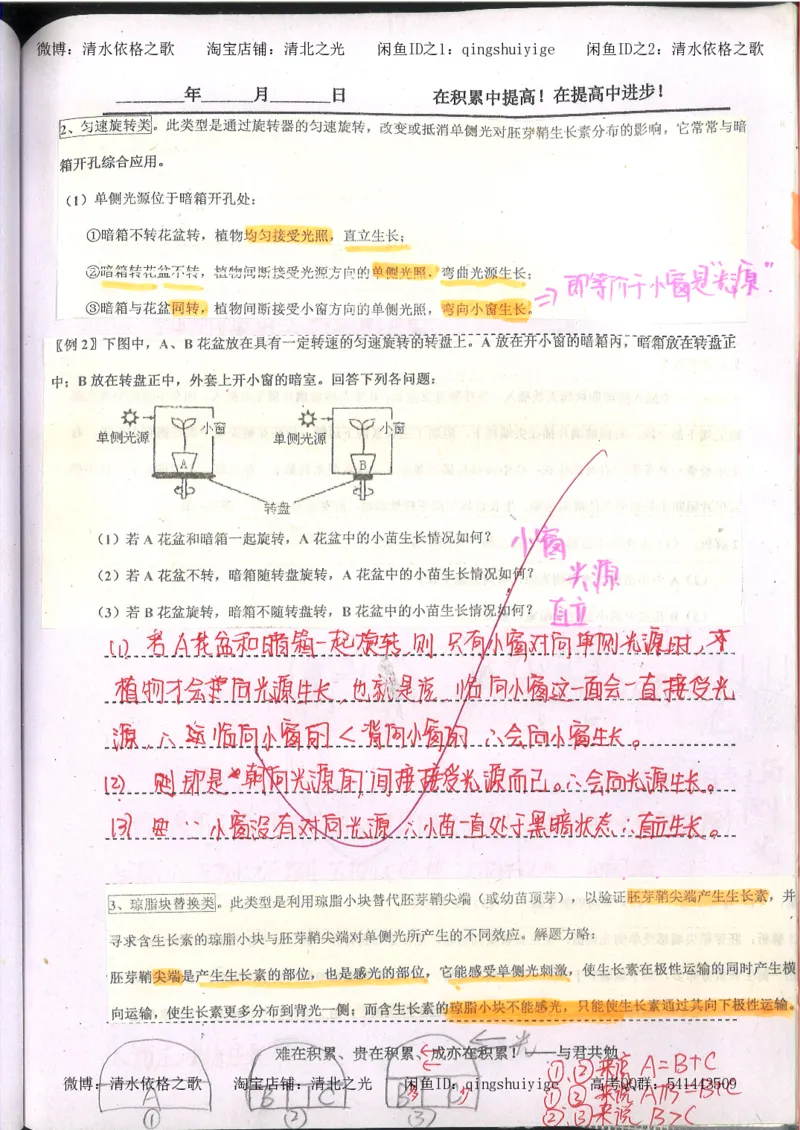 微博：清水依格之歌 淘宝店铺：清北之光 闲鱼ID之1：qingshuiyige 闲鱼ID之2：清水依格之歌
______年______月______日 在积累中提高！在提高中进步！
2、匀速旋转类。此类型是通过旋转器的匀速旋转，改变或抵消单侧光对胚芽鞘生长素分布的影响，它常常与暗
箱开孔综合应用。
（1）单侧光源位于暗箱开孔处：
①暗箱不转花盆转，植物均匀接受光照，直立生长；
②暗箱转花盆不转，植物间断接受光源方向的单侧光照，弯曲光源生长；
③暗箱与花盆同转，植物间断接受小窗方向的单侧光照，弯向小窗生长。
⇒即等价于小窗是"光源"
〖例 2〗下图中，A、B 花盆放在具有一定转速的匀速旋转的转盘上。A 放在开小窗的暗箱内，暗箱放在转盘正
中；B 放在转盘正中，外套上开小窗的暗室。回答下列各问题：
单侧光源 小窗 A 单侧光源 小窗 B
转盘
（1）若 A 花盆和暗箱一起旋转，A 花盆中的小苗生长情况如何？ 小窗
（2）若 A 花盆不转，暗箱随转盘旋转，A 花盆中的小苗生长情况如何？ 光源
（3）若 B 花盆旋转，暗箱不随转盘转，B 花盆中的小苗生长情况如何？ 直立
(1) 若A花盆和暗箱一起旋转,则 只有小窗对向单侧光源时,
植物才会 向光源生长,也就是说,临向小窗这一面会一直接受光
源,∴ 临向小窗的<背向小窗的 ∴会向小窗生长。
(2) 则却是 朝向光源的间接接受光源而已。∴会向光源生长。
(3) ∵小窗没有对向光源∴小苗一直处于黑暗状态∴直立生长。
3、琼脂块替换类。此类型是利用琼脂小块替代胚芽鞘尖端（或幼苗顶芽），以验证胚芽鞘尖端产生生长素，并
寻求含生长素的琼脂小块与胚芽鞘尖端对单侧光所产生的不同效应。解题方略：
胚芽鞘尖端是产生生长素的部位，也是感光的部位，它能感受单侧光刺激，使生长素在极性运输的同时产生横
向运输，使生长素更多分布到背光一侧；而含生长素的琼脂小块不能感光，只能使生长素通过其向下极性运输。
难在积累、贵在积累、成亦在积累！——与君共勉
光
A B C B C
① ② ③
①、②来说 A=B+C
①③来说 A=B+C
②、③来说 B>C
微博：清水依格之歌 淘宝店铺：清北之光 闲鱼ID：qingshuiyige 高考QQ群：541443509